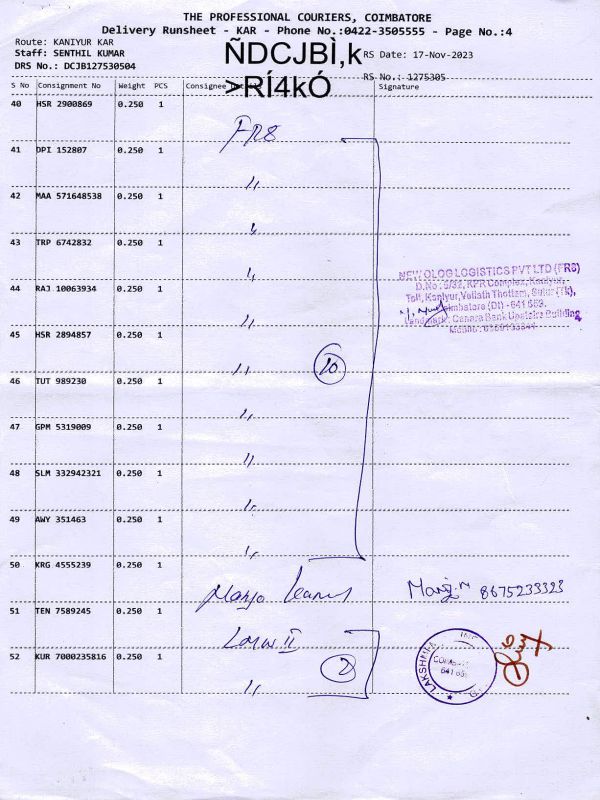 THE PROFESSIONAL COURIERS, COIMBATORE
Delivery Runsheet - KAR - Phone No.:0422-3505555 - Page No.:4
Route: KANIYUR KAR
Staff: SENTHIL KUMAR
DRS No.: DCJB127530504
ÑDCJBÌ,k
>RÍ4kÓ
RS Date: 17-Nov-2023
RS No.: 1275305
S No Consignment No Weight PCS Consignee Signature
40 HSR 2900869 0.250 1 FR8
41 DPI 152807 0.250 1 〃
42 MAA 571648538 0.250 1 〃
43 TRP 6742832 0.250 1 〃
44 RAJ 10063934 0.250 1 〃
45 HSR 2894857 0.250 1 〃
46 TUT 989230 0.250 1 〃
47 GPM 5319009 0.250 1 〃
48 SLM 332942321 0.250 1 〃
49 AWY 351463 0.250 1 〃
10
NEW OLOG LOGISTICS PVT LTD (FR8)
D.No : 5/32, KPR Complex, Kaniyur,
Toll, Kaniyur, Vellath Thottam, Sulur (Tk),
(Dt) - 641 659.
Landmark: Canara Bank Upstairs Building
Mobile:
50 KRG 4555239 0.250 1 8675233323
51 TEN 7589245 0.250 1
52 KUR 7000235816 0.250 1 〃
2
LAKSHMI